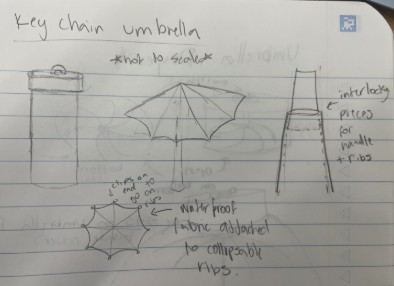 Key chain umbrella
*not to scale*
interlocky
pieces
for
handle
+ ribs
clips on
end to
go on
ribs
waterproof
fabric addached
to collapsable
ribs.